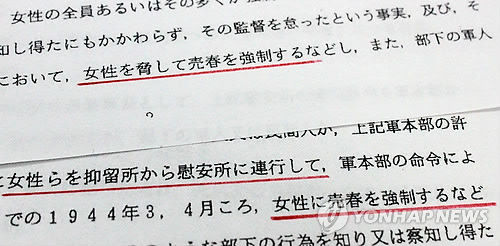 女性の全員あるいはその多くが
知し得たにもかかわらず，その監督を怠ったという事実，及び，そ
において，女性を脅して売春を強制するなどし，また，部下の軍人
民間人が，上記軍本部の許
に女性らを抑留所から慰安所に連行して，軍本部の命令によ
での１９４４年３，４月ころ，女性に売春を強制するなど
部下の行為を知り又は察知し得た
YONHAP NEWS